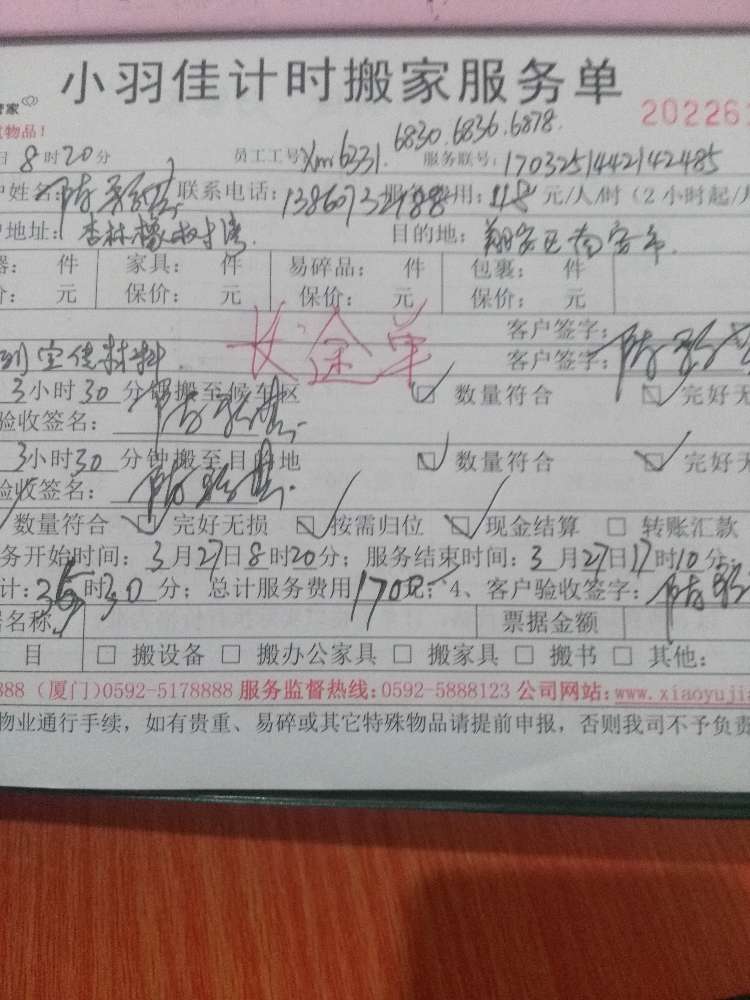 小羽佳计时搬家服务单
管家
202261
物品！
6830.6836.6878.
日8时20分 员工工号Xm6331. 服务联号：1703251442142485
姓名： 陈 联系电话： 用： 元/人/时（2小时起/
地址：杏林橡树湾. 目的地：翔安区南安市.
器： 件 家具： 件 易碎品： 件 包裹： 件
价： 元 保价： 元 保价： 元 保价： 元
长途单
客户签字：陈
到宝佳材料. 客户签字：
3小时30分钟搬至候车区 ☑数量符合 ☑完好无
验收签名：陈
3小时30分钟搬至目的地 ☑数量符合 ☑完好无
验收签名：陈
数量符合 ☑完好无损 ☑按需归位 ☑现金结算 □转账汇款
务开始时间：3月27日8时20分；服务结束时间：3月27日17时10分；
计： 时30分；总计服务费用170元；4、客户验收签字：陈
名称 票据金额
目 □搬设备 □搬办公家具 □搬家具 □搬书 □其他：
888（厦门）0592-5178888服务监督热线：0592-5888123公司网站：www.xiaoyuji
物业通行手续，如有贵重、易碎或其它特殊物品请提前申报，否则我司不予负责